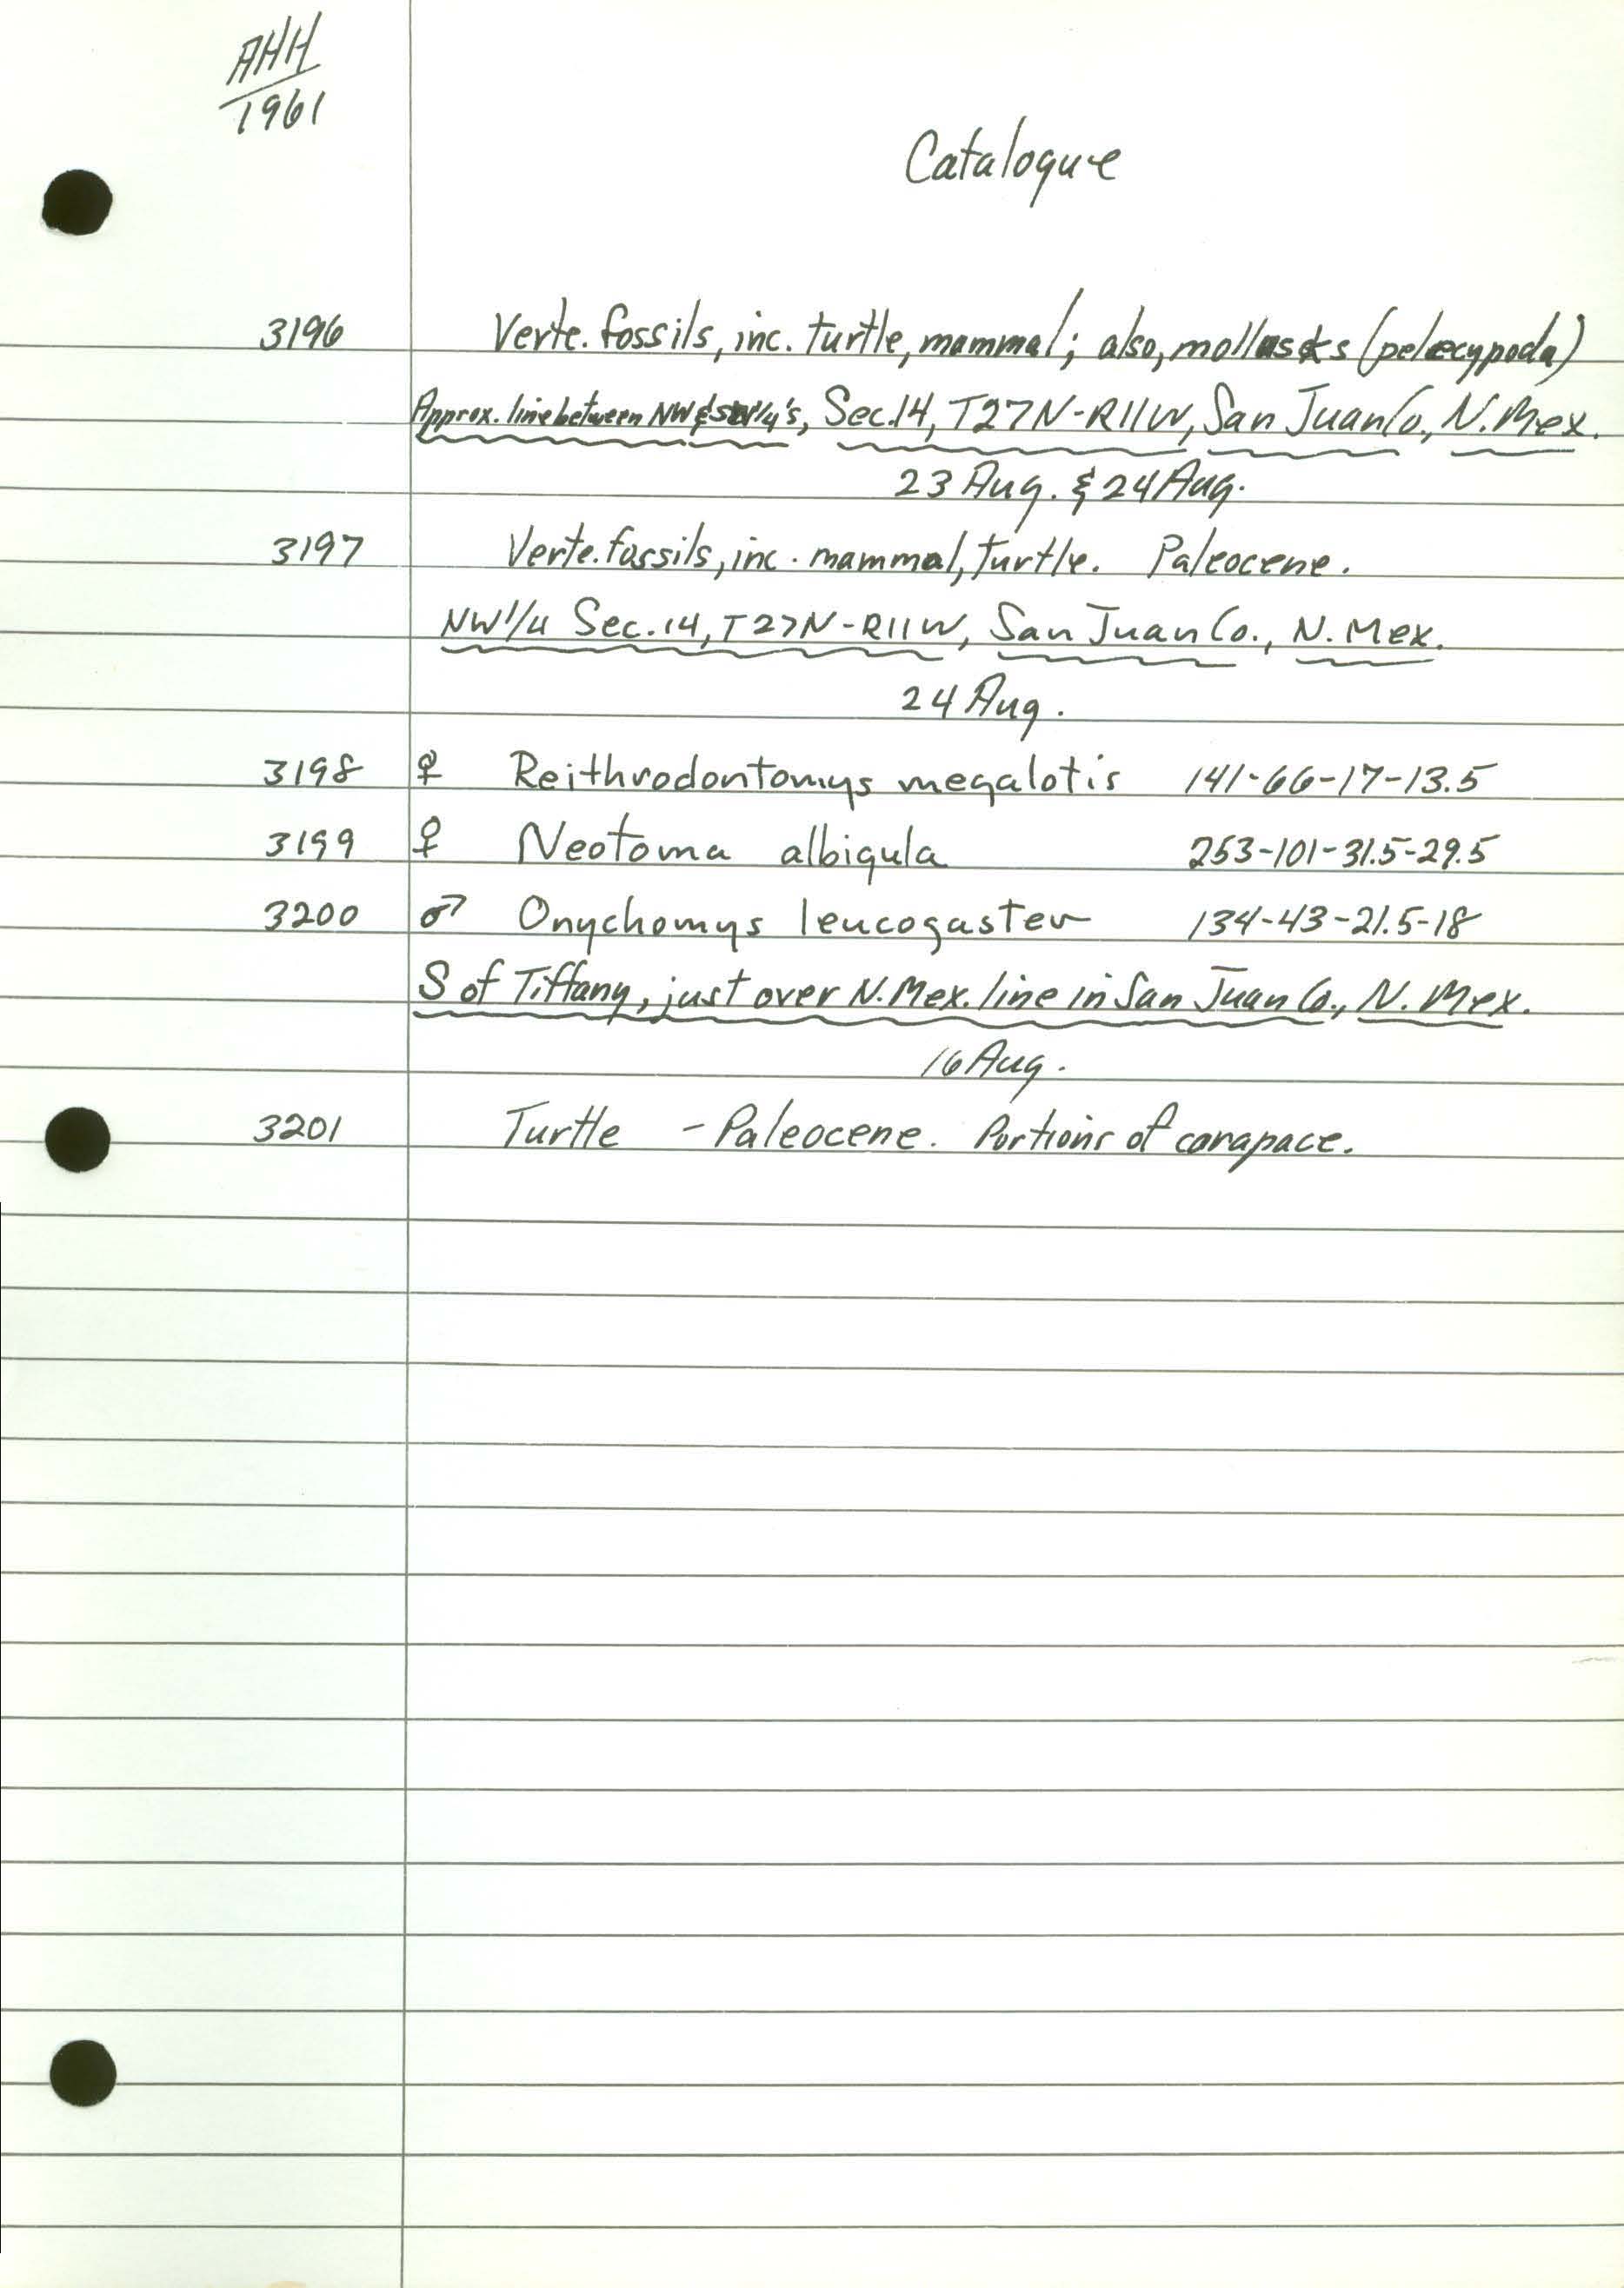 AHH
1961
Catalogue
3196 Verte. fossils, inc. turtle, mammal; also, mollusks (pelecypoda)
Approx. line between NW & SW 1/4's, Sec. 14, T27N-R11W, San Juan Co., N. Mex.
23 Aug. & 24 Aug.
3197 Verte. fossils, inc. mammal, turtle. Paleocene.
NW 1/4 Sec. 14, T27N-R11W, San Juan Co., N. Mex.
24 Aug.
3198 ♀ Reithrodontomys megalotis 141-66-17-13.5
3199 ♀ Neotoma albigula 253-101-31.5-29.5
3200 ♂ Onychomys leucogaster 134-43-21.5-18
S of Tiffany, just over N. Mex. line in San Juan Co., N. Mex.
16 Aug.
3201 Turtle - Paleocene. Portions of carapace.